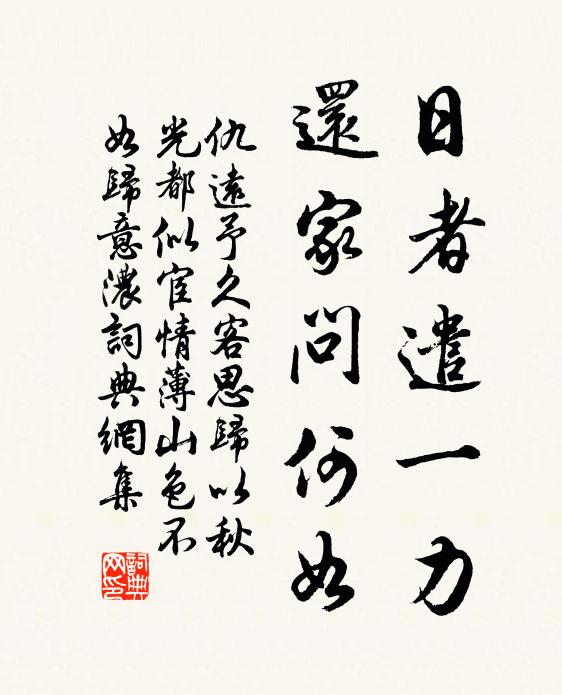 日者遣一力
還家問何如
仇遠予久客思歸以秋
光都似宦情薄山色不
如歸意濃詞典網集
詞典
网印